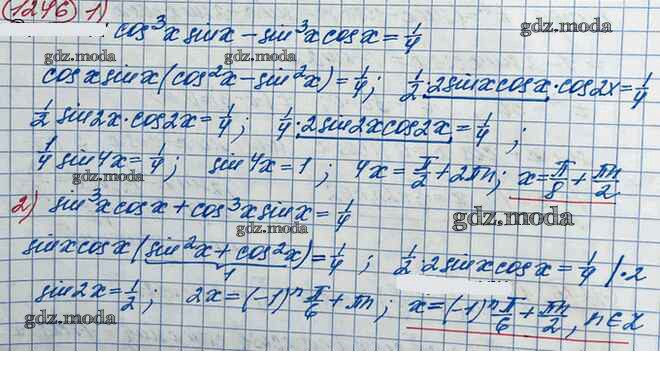 1246 1) cos³x sinx - sin³x cosx = 1/4 gdz.moda
gdz.moda cosx sinx (cos²x - sin²x) = 1/4; 1/2 · 2sinxcosx · cos2x = 1/4
gdz.moda
1/2 sin2x · cos2x = 1/4; 1/4 · 2sin2xcos2x = 1/4;
1/4 sin4x = 1/4; sin4x = 1; 4x = π/2 + 2πn; x = π/8 + πn/2
gdz.moda
2) sin³x cosx + cos³x sinx = 1/4
gdz.moda gdz.moda
sinx cosx (sin²x + cos²x) = 1/4; 1/2 · 2sinxcosx = 1/4 | ·2
1
sin2x = 1/2; 2x = (-1)ⁿ π/6 + πn; x = (-1)ⁿ π/6 + πn/2, n∈Z
gdz.moda gdz.moda